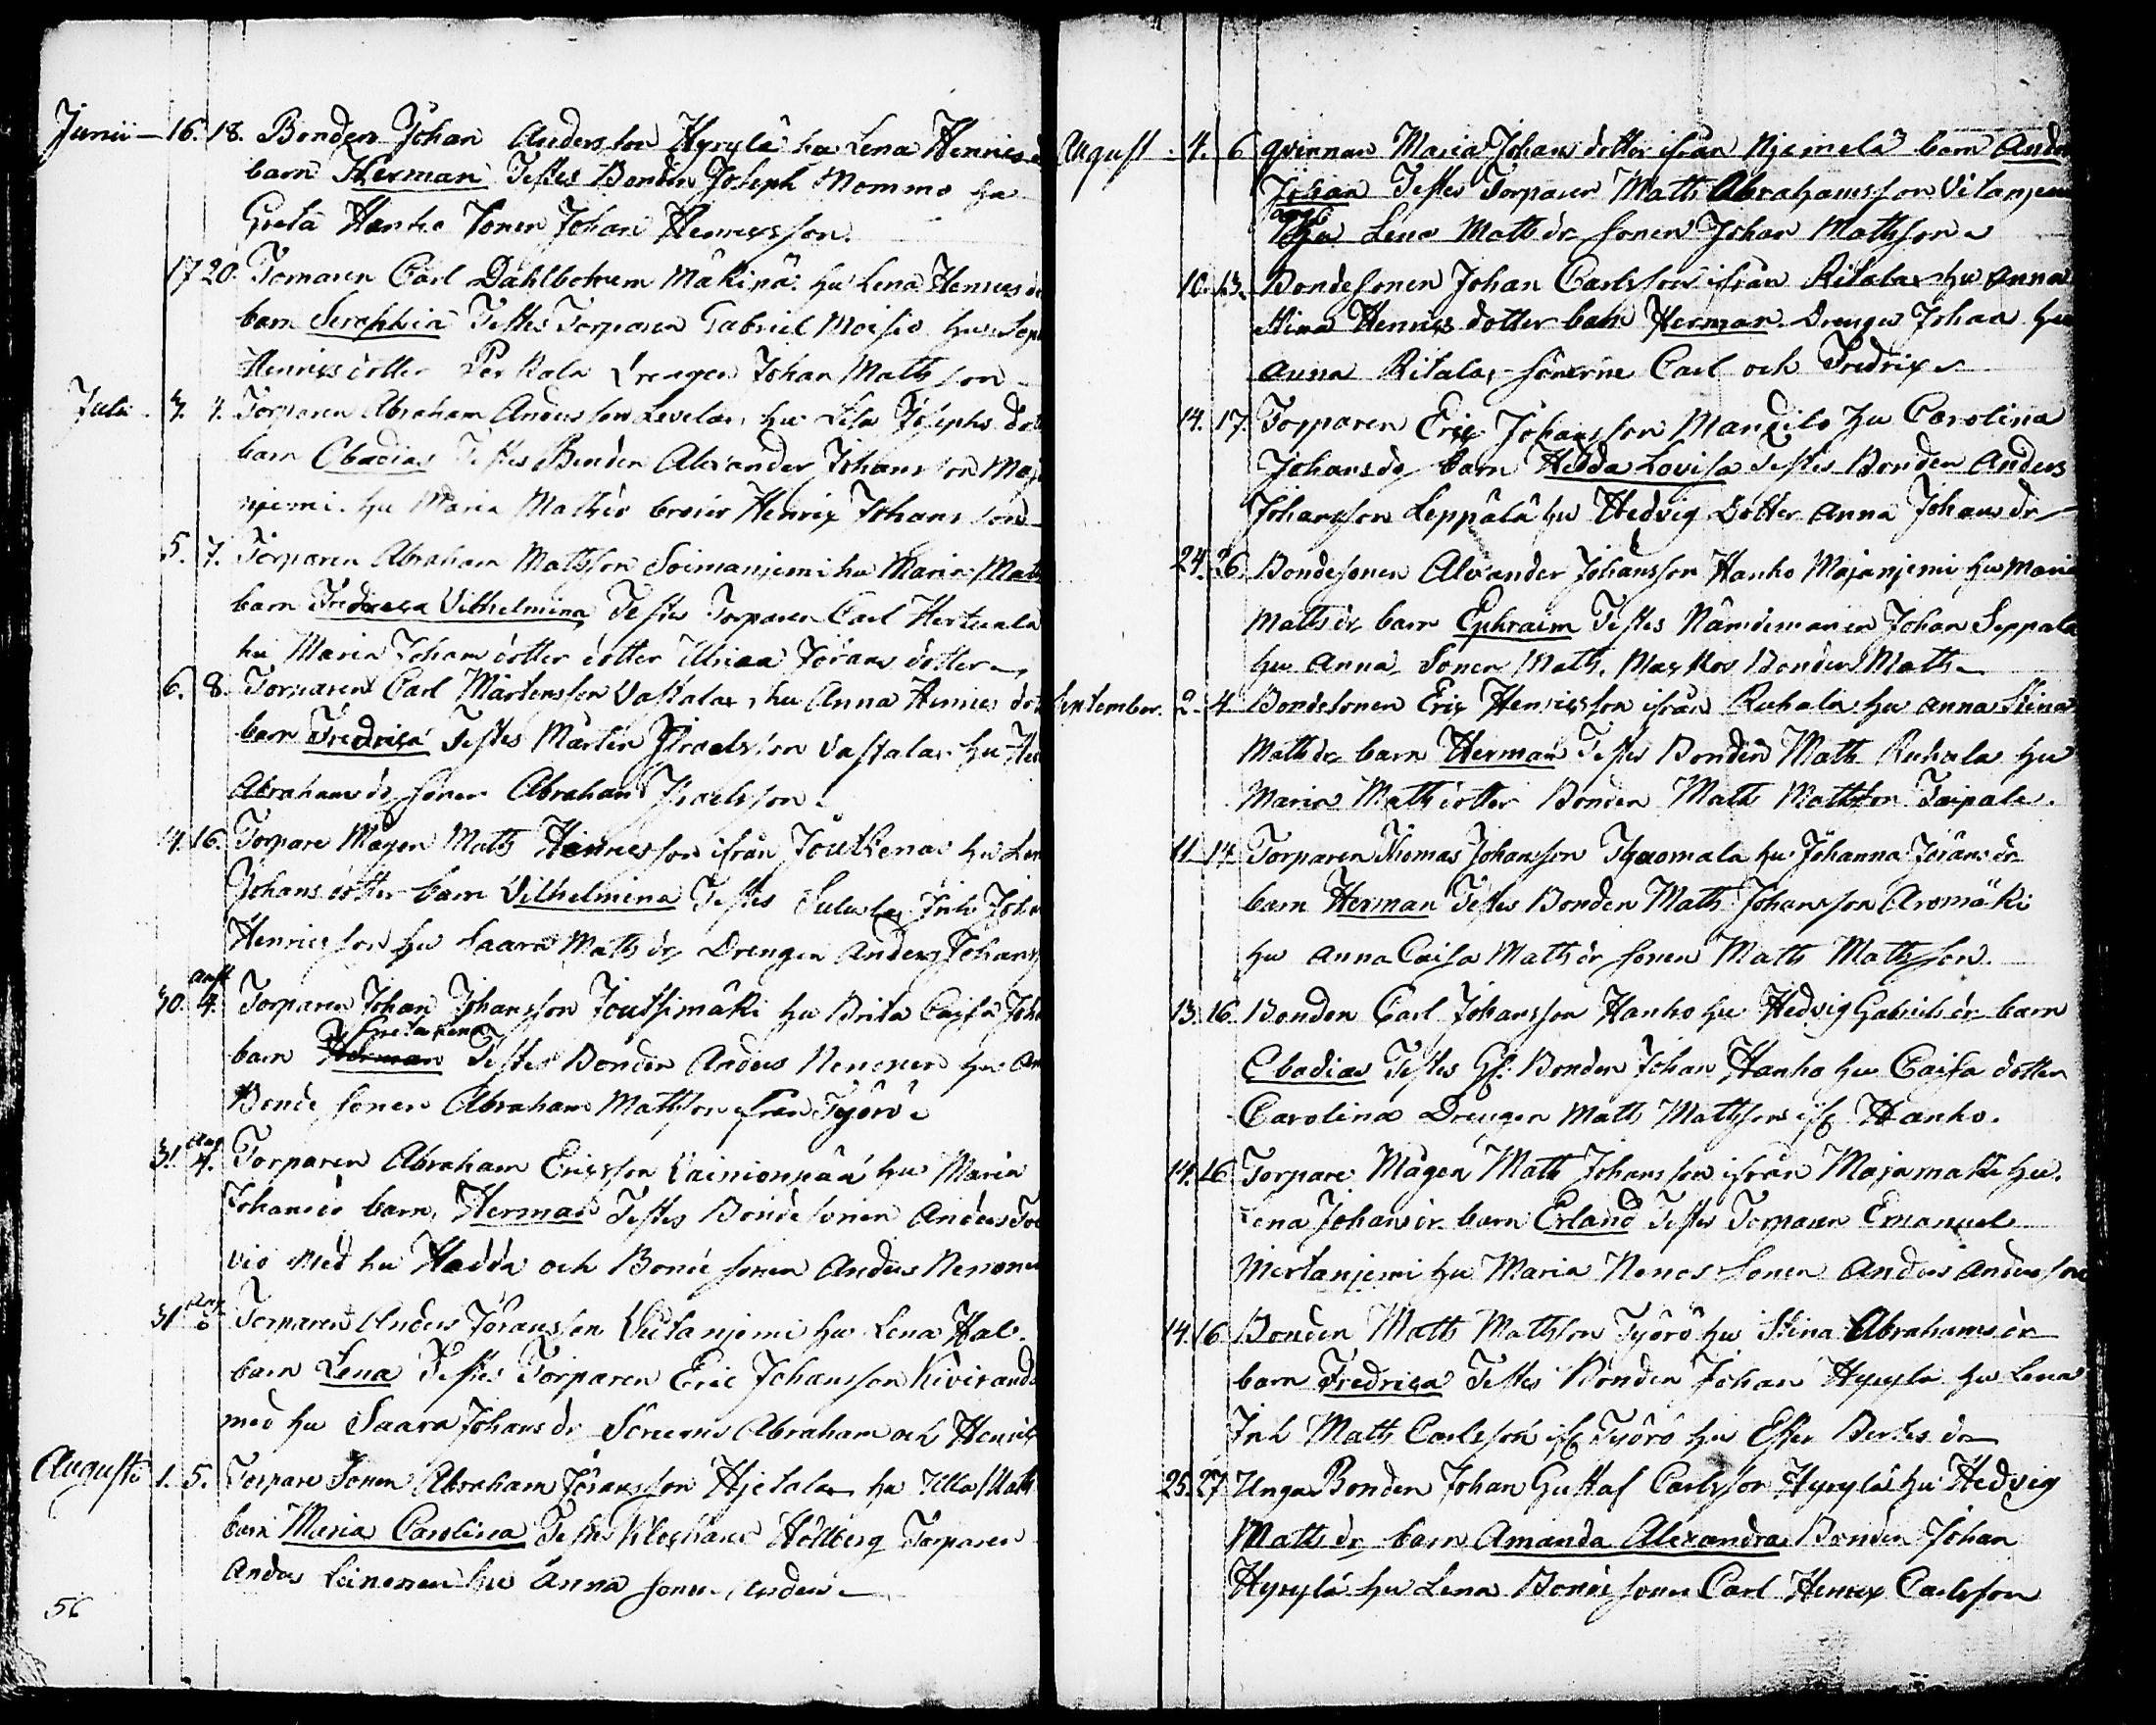 Junii 16. 18. Bonden Johan Andersson Hyrylä hu Lena Henrics
barn Herman Testes Bonden Joseph Mommo hu
Greta Hanho Sonen Johan Henricsson.
17 20. Torparen Carl Dahlbohm Mäkinä hu Lena Henrics
barn Seraphia Testes Torparen Gabriel Moisio hu
Henricsdotter Drengen Johan Mathsson
Julii 7. Torparen Abraham Andersson Levelax hu Lisa Josephs
barn Obadias Testes Bonden Alexander Johansson
njemi. hu Maria broder Henrix Johansson
5. 7. Torparen Abraham Mathsson Soimanjemi hu Maria Maths
barn Fredrica Vilhelmina Testes Torparen Carl Hertuala
hu Maria Johans dotter dotter Ulrica Jörans dotter
6. 8. Torparen Carl Mårtensson Vastala hu Anna Henrics
barn Fredrica Testes Mårten Israelsson Vastala hu
Abrahams dr sonen Abraham Israelsson.
14. 16. Torpare Mågen Maths Henricsson ifrån Jouthenus hu
Johans dotter barn Vilhelmina Testes Inh.
Henricsson hu Saara Maths dr Drengen Anders Johans
30. Aug 4. Torparen Johan Johansson Joutsimäki hu Brita Caisa
Greta Lena
barn Herman Testes Bonden Anders Nenonen hu
Bonde sonen Abraham Mathsson från Työrö
31. Aug 4. Torparen Abraham Ericsson Vainionpää hu Maria
Johansdr barn Herman Testes Bondesonen Anders
med hu Hedda och Bonde sonen Anders Nenonen
31 Aug 6 Torparen Anders Jöransson Vitanjemi hu Lena
barn Lena Testes Torparen Eric Johansson Kiviranda
med hu Saara Johans dr Sönerna Abraham och Henric
Augusti 1. 5. Torpare Sonen Abraham Jöransson Hjetala hu Ulla Maths
barn Maria Carolina Testes Hollberg Torparen
Anders Leinonen hu Anna sonen Anders
56
August. 4. 6 qvinnan Maria Johans dotter ifrån Njemelä barn Anders
Johan Testes Torparen Maths Abrahamsson Vitanjemi
hu Lena Maths dr sonen Johan Mathsson
10. 13. Bondesonen Johan Carlsson ifrån Ritala hu Anna
Stina Henrics dotter barn Herman Drengen Johan hu
Anna Ritala, sönerne Carl och Fredrix
14. 17. Torparen Erix Johansson Mangilo hu Carolina
Johans dr barn Hedda Lovisa Testes Bonden Anders
Johansson Leppälä hu Hedvig Dotter Anna Johans dr
24. 26. Bondesonen Alexander Johansson Hanho Majanjemi hu Maria
Maths dr barn Ephraim Testes Nämdemannen Johan Seppala
hu Anna, Sonen Maths. Markos Bonden Maths
September. 2. 4. Bondesonen Erix Henricsson ifrån Ruhala hu Anna Stina
Maths dr barn Herman Testes Bonden Maths Ruhala hu
Maria Maths dotter Bonden Maths Mathsson Taipale.
11 14. Torparen Thomas Johansson Tyomala hu Johanna Jörans dr
barn Herman Testes Bonden Maths Johansson Aromäki
hu Anna Caisa Maths dr sonen Maths Mathsson.
13. 16. Bonden Carl Johansson Hanho hu Hedvig Gabriels dr barn
Obadias Testes Gl. Bonden Johan Hanho hu Caisa dotter
Carolina Drengen Maths Mathsson if. Hanho.
14. 16 Torpare Mågen Maths Johansson ifrån Majamäki hu
Lena Johans dr barn Erland Testes Torparen Emanuel
Mertanjemi hu Maria Nenos Sonen Anders Andersson
14. 16 Bonden Maths Mathsson Työrö hu Stina Abrahams dr
barn Fredrica Testes Bonden Johan Hyrylä hu Lena
Inh Maths Carlsson if. Työrö hu Ester Bertils dr
25. 27 Unga Bonden Johan Gustaf Carlsson Hyrylä hu Hedvig
Maths dr, barn Amanda Alexandra Bonden Johan
Hyrylä hu Lena Bonde sonen Carl Henrix Carlsson